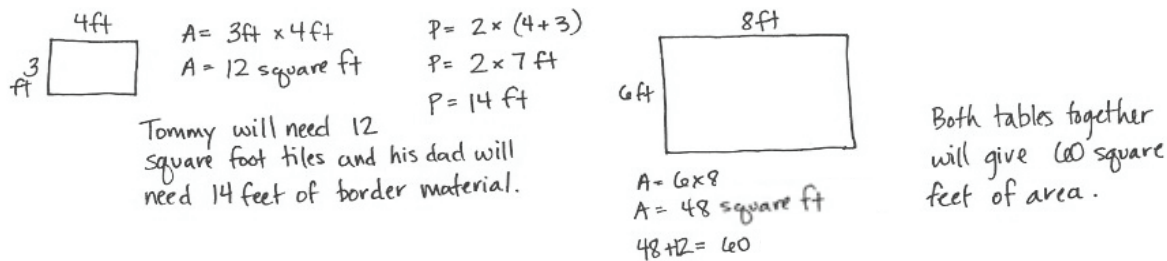 4ft
3
ft
A = 3ft × 4ft
A = 12 square ft
P = 2 × (4+3)
P = 2 × 7 ft
P = 14 ft
Tommy will need 12
square foot tiles and his dad will
need 14 feet of border material.
8ft
6ft
A = 6×8
A = 48 square ft
48+12 = 60
Both tables together
will give 60 square
feet of area.